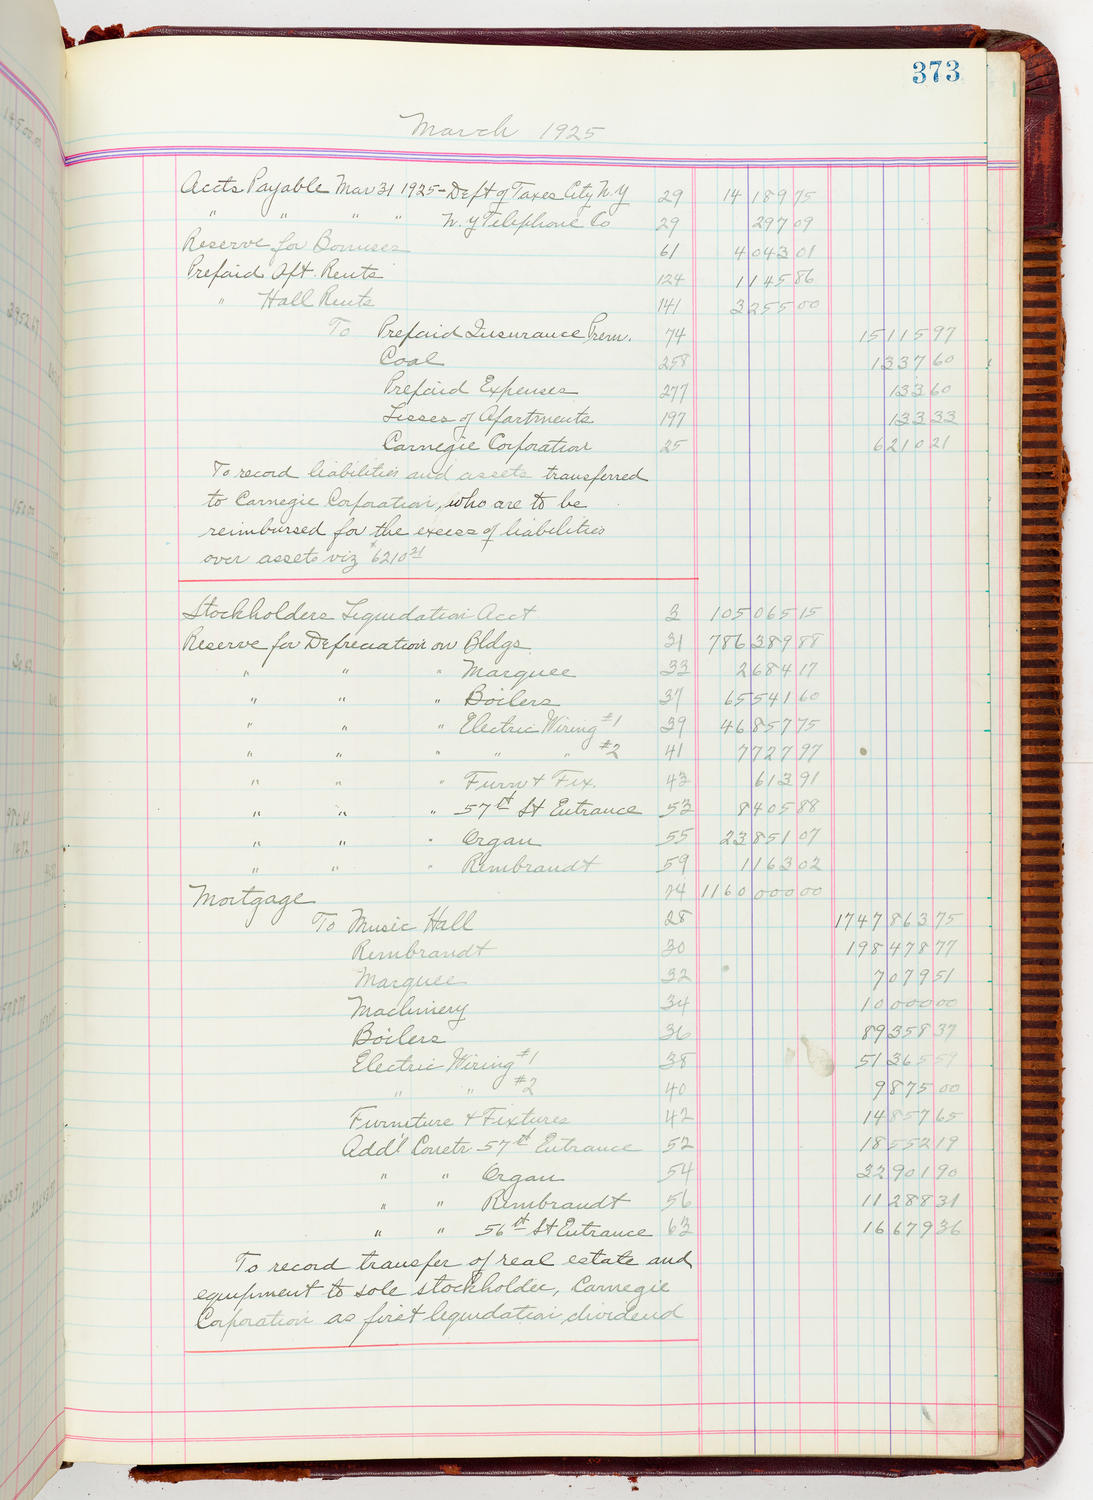 373
March 1925
Accts Payable Mar 31 1925 - Dept of Taxes City N Y 29 14 189 75
" " " " N. Y Telephone Co 29 297 09
Reserve for Bonuses 61 4 043 01
Prepaid Apt. Rents 124 1 145 86
" Hall Rents 141 3 255 00
To Prepaid Insurance Prem. 74 15 115 97
Coal 258 1 337 60
Prepaid Expenses 277 133 60
Lesses of Apartments 197 133 33
Carnegie Corporation 25 6 210 21
To record liabilities and assets transferred
to Carnegie Corporation, who are to be
reimbursed for the excess of liabilities
over assets viz $6210 21
Stockholders Liquidation Acct 3 105 065 15
Reserve for Depreciation on Bldgs. 31 786 389 88
" " " Marquee 33 2 684 17
" " " Boilers 37 65 541 60
" " " Electric Wiring #1 39 46 857 75
" " " " " #2 41 7 727 97
" " " Furn & Fix. 43 613 91
" " " 57th St Entrance 53 8 405 88
" " " Organ 55 23 851 07
" " " Rembrandt 59 1 163 02
Mortgage 24 1160 000 00
To Music Hall 28 1747 863 75
Rembrandt 30 198 478 77
Marquee 32 7 079 51
Machinery 34 10 000 00
Boilers 36 89 358 37
Electric Wiring #1 38 51 365 59
" " #2 40 9 875 00
Furniture & Fixtures 42 14 857 65
Add'l Constr. 57th Entrance 52 18 552 19
" " Organ 54 32 901 90
" " Rembrandt 56 11 288 31
" " 56th St Entrance 63 16 679 36
To record transfer of real estate and
equipment to sole stockholder, Carnegie
Corporation as first liquidation dividend